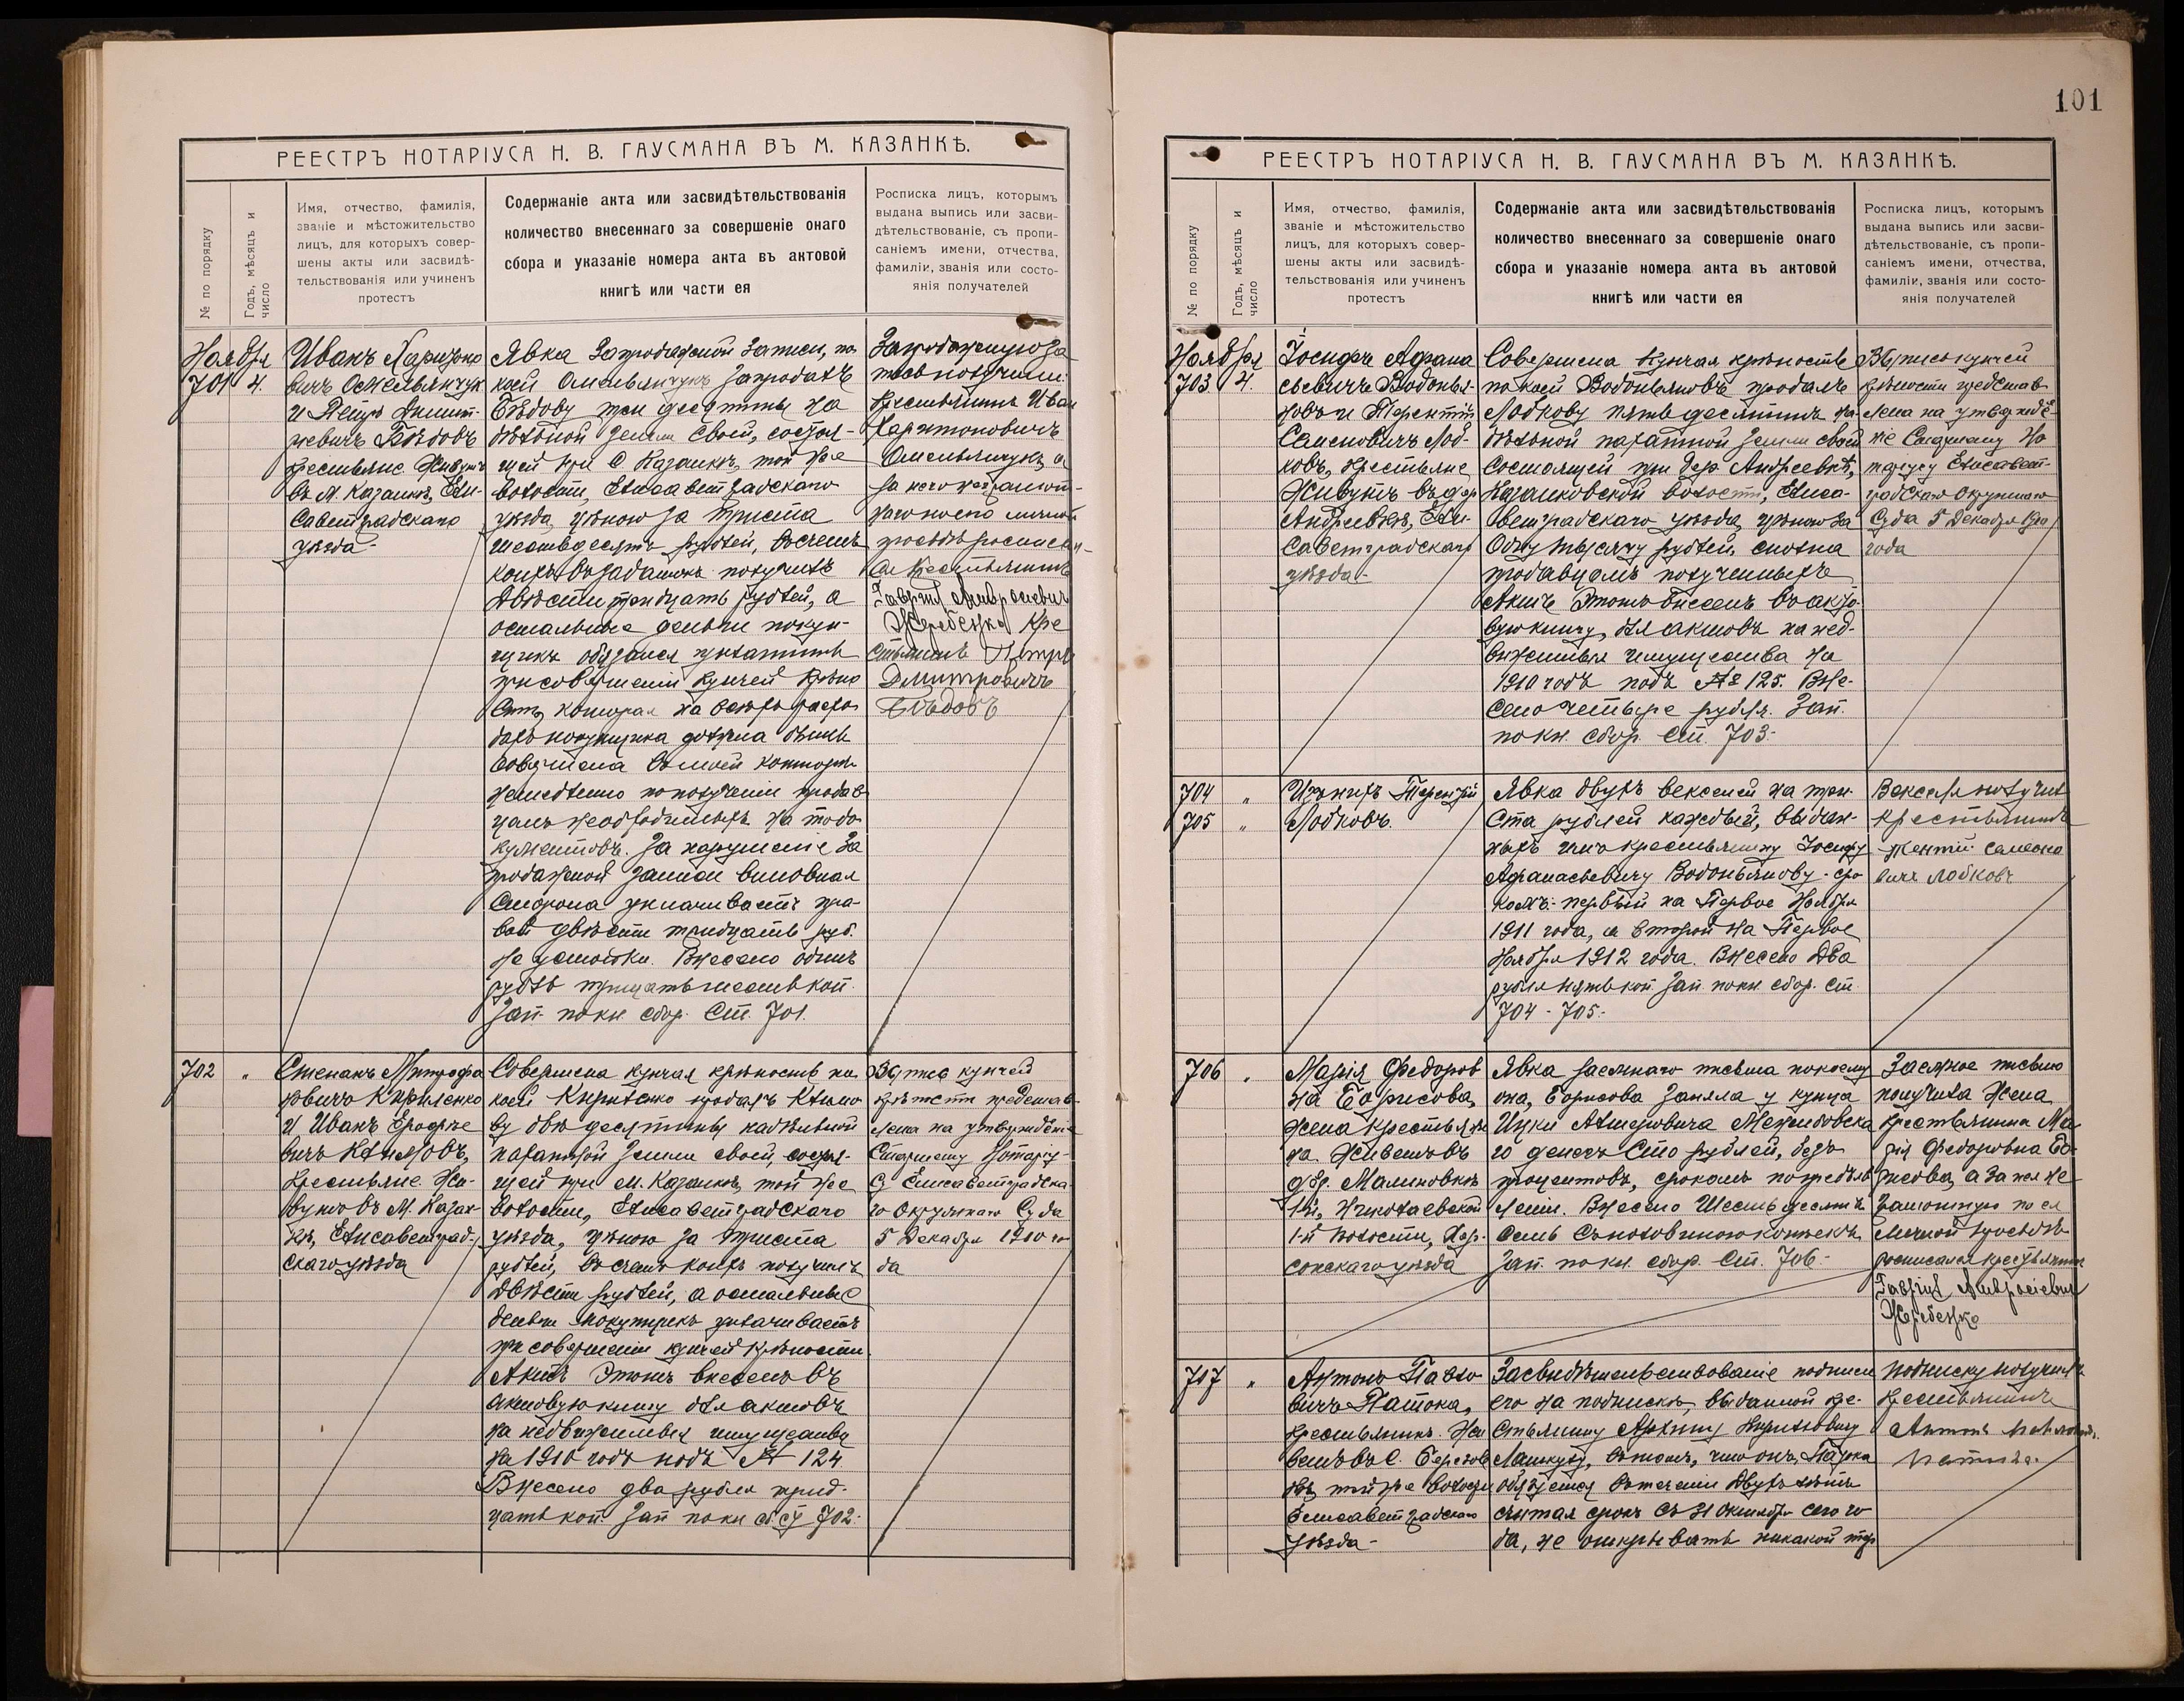 101
РЕЕСТРЪ НОТАРІУСА Н. В. ГАУСМАНА ВЪ М. КАЗАНКѢ.
№ по порядку
Годъ, мѣсяцъ и
число
Имя, отчество, фамилія,
званіе и мѣстожительство
лицъ, для которыхъ совер-
шены акты или засвидѣ-
тельствованія или учиненъ
протестъ
Содержаніе акта или засвидѣтельствованія
количество внесеннаго за совершеніе онаго
сбора и указаніе номера акта въ актовой
книгѣ или части ея
Росписка лицъ, которымъ
выдана выпись или засви-
дѣтельствованіе, съ пропи-
саніемъ имени, отчества,
фамиліи, званія или состо-
янія получателей
Ноября
701 4.
Иванъ Харитоно
вичъ Омельянчукъ
и Петръ Димит-
ріевичъ Бѣдовъ
крестьяне. Живутъ
въ м. Казанкѣ, Ели-
саветградскаго
уѣзда-
Явка запродажной записи, по
коей Омельянчукъ запродалъ
Бѣдову три десятины на
дѣльной земли своей, состоя-
щей при с Казанкѣ, той же
волости, Елисаветградскаго
уѣзда, цѣною за триста
шестьдесятъ рублей, въ счетъ
коихъ въ задатокъ получилъ
двѣсти тридцать рублей, а
остальные деньги покуп-
щикъ обязался уплатить
при совершеніи купчей крѣпо
сти, которая на всѣхъ расхо
дахъ покупщика должна быть
совершена въ моей конторѣ
немедленно по полученіи продав
цомъ необходимыхъ на то до
кументовъ. За нарушеніе за
продажной записи виновная
сторона уплачиваетъ пра-
вой двѣсти тридцать руб.
неустойки. Внесено одинъ
рубль тридцать шесть коп.
Зап. по кн. сбор. Ст. 701.
Запродажную за
пись получили:
Крестьянинъ Иван
Харитоновичъ
Омельянчукъ, а
за него неграмот-
наго по его личной
просьбѣ расписал-
ся крестьянинъ
Гавріилъ Амвросіевич
Жеребецко Кре
стьянинъ Петръ
Дмитровичъ
Бѣдовъ
702 "
Степанъ Митрофа
новичъ Кириленко
и Иванъ Ерофѣе
вичъ Климовъ,
крестьяне. Жи-
вутъ въ м. Казан-
кѣ, Елисаветград-
скаго уѣзда
Совершена купчая крѣпость по
коей Кириленко продалъ Климо
ву двѣ десятины надѣльной
пахатной земли своей, состоя-
щей при м. Казанкѣ, той же
волости, Елисаветградскаго
уѣзда, цѣною за триста
рублей, въ счетъ коихъ получилъ
двѣсти рублей, а остальные
деньги покупщикъ уплачиваетъ
при совершеніи купчей крѣпости.
Актъ этотъ внесенъ въ
актовую книгу для актовъ
на недвижимыя имущества
на 1910 годъ подъ № 124.
Внесено два рубля трид-
цать коп. Зап по кн сб. ст 702.
Выпись купчей
крѣпости представ
лена на утвержденіе
Старшему Нотаріу-
су Елисаветградска
го Окружнаго Суда
5 Декабря 1910 го
да
РЕЕСТРЪ НОТАРІУСА Н. В. ГАУСМАНА ВЪ М. КАЗАНКѢ.
№ по порядку
Годъ, мѣсяцъ и
число
Имя, отчество, фамилія,
званіе и мѣстожительство
лицъ, для которыхъ совер-
шены акты или засвидѣ-
тельствованія или учиненъ
протестъ
Содержаніе акта или засвидѣтельствованія
количество внесеннаго за совершеніе онаго
сбора и указаніе номера акта въ актовой
книгѣ или части ея
Росписка лицъ, которымъ
выдана выпись или засви-
дѣтельствованіе, съ пропи-
саніемъ имени, отчества,
фамиліи, званія или состо-
янія получателей
Ноября
703. 4.
Іосифъ Афана
сьевичъ Водопья-
новъ и Терентій
Семеновичъ Лоб-
ковъ, крестьяне
Живутъ въ дер
Андреевкѣ, Ели-
саветградскаго
уѣзда-
Совершена купчая крѣпость
по коей Водопьяновъ продалъ
Лобкову пять десятинъ на-
дѣльной пахатной земли своей
состоящей при дер. Андреевкѣ,
Казанковской волости, Елиса-
ветградскаго уѣзда, цѣною за
одну тысячу рублей, сполна
продавцомъ полученныхъ
Актъ этотъ внесенъ въ акто-
вую книгу, для актовъ на нед-
вижимыя имущества на
1910 годъ подъ № 125. Вне-
сено четыре рубля. Зап.
по кн. сбор. ст. 703.
Выпись купчей
крѣпости представ
лена на утвержде-
ніе Старшему Но
таріусу Елисавет-
градскаго Окружнаго
Суда 5 Декабря 1910
года
704 "
705 "
Терентій
Лобковъ.
Явка двухъ векселей на три-
ста рублей каждый, выдан-
ныхъ имъ крестьянину Іосифу
Афанасьевичу Водопьянову. сро
комъ: первый на Первое Ноября
1911 года, а второй на Первое
Ноября 1912 года. Внесено два
рубля пять коп. Зап. по кн. сбор. ст.
704 - 705.
Векселя получил
крестьянинъ
Семено
вичъ Лобковъ
706 "
Марія Федоров
на Борисова,
жена крестьяни
на. Живетъ въ
дер. Малиновкѣ
1-й, Николаевской
1-й волости, Хер-
сонскаго уѣзда
Явка заемнаго письма по коему
она, Борисова заняла у купца
Ицки Лейзеровича Межибовска
го денегъ сто рублей, безъ
процентовъ, срокомъ по предъяв
ленiи. Внесено шестьдесятъ
семь съ половиною копѣекъ.
Зап. по кн. сбор. ст. 706-
Заемное письмо
получила жена
крестьянина Ма
рія Федоровна Бо-
рисова, а за нея не
грамотную по ея
личной просьбѣ
росписался крестьянин
Гавріилъ Амвросіевич
Жеребецко
707 "
Антонъ Павло
вичъ Патока,
крестьянинъ. Жи
ветъ въ с. Березов
кѣ, той же волости
Елисаветградскаго
уѣзда-
Засвидѣтельствованіе подписи
его на подпискѣ, выданной кре-
стьянину Архипу Кирилловичу
въ томъ, что онъ, Патока
обязуется въ теченіи двухъ лѣтъ
считая срокъ съ 31 октября сего го
да, не открывать никакой тор
Подписку получилъ
крестьянинъ
Антонъ
Патока.